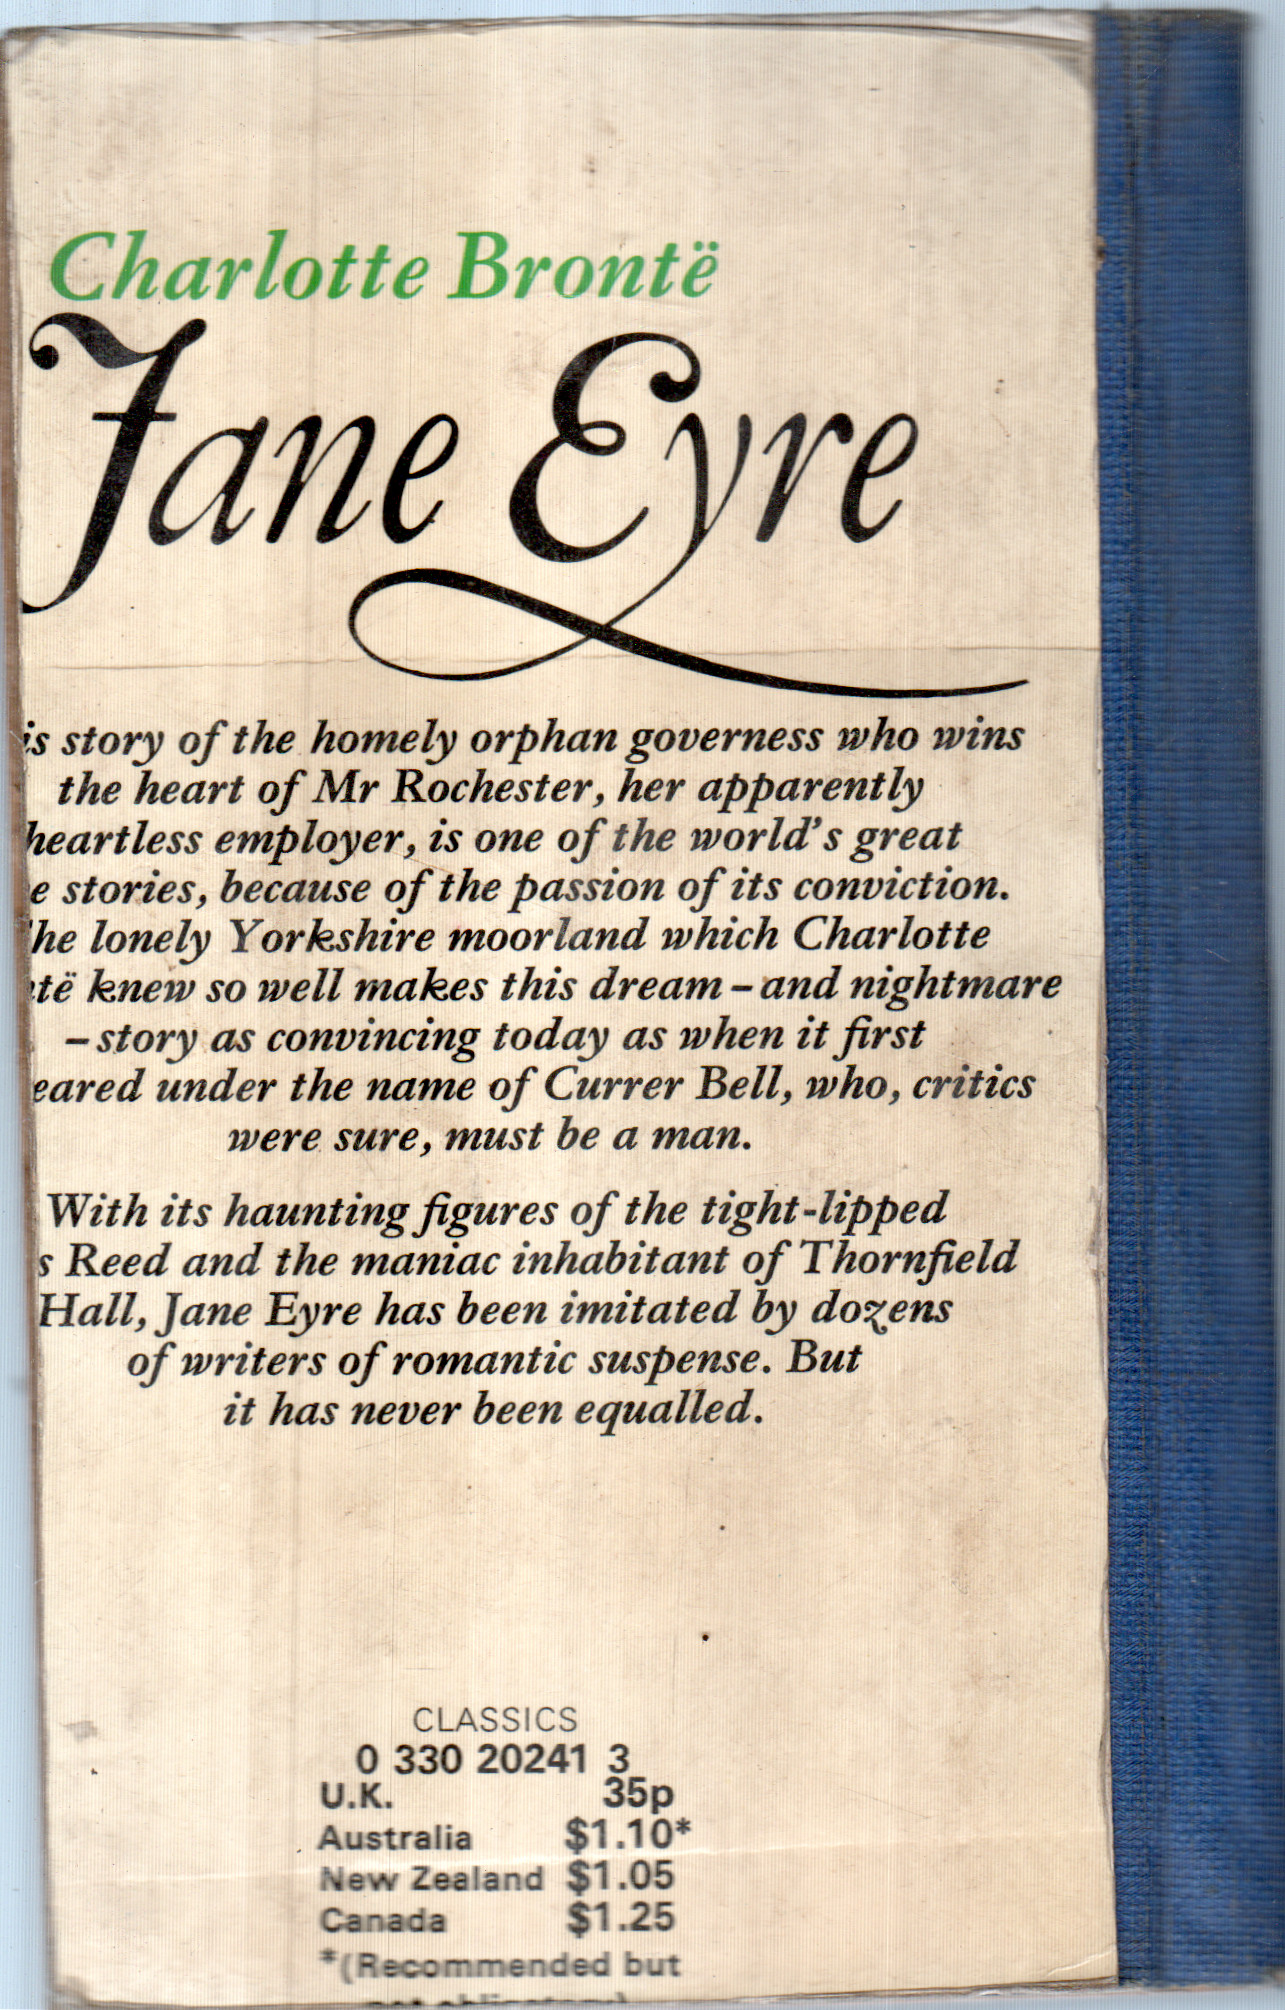 Charlotte Brontë
Jane Eyre
is story of the homely orphan governess who wins
the heart of Mr Rochester, her apparently
heartless employer, is one of the world's great
e stories, because of the passion of its conviction.
he lonely Yorkshire moorland which Charlotte
të knew so well makes this dream – and nightmare
– story as convincing today as when it first
eared under the name of Currer Bell, who, critics
were sure, must be a man.
With its haunting figures of the tight-lipped
s Reed and the maniac inhabitant of Thornfield
Hall, Jane Eyre has been imitated by dozens
of writers of romantic suspense. But
it has never been equalled.
CLASSICS
0 330 20241 3
U.K. 35p
Australia $1.10*
New Zealand $1.05
Canada $1.25
*(Recommended but
not obligatory)